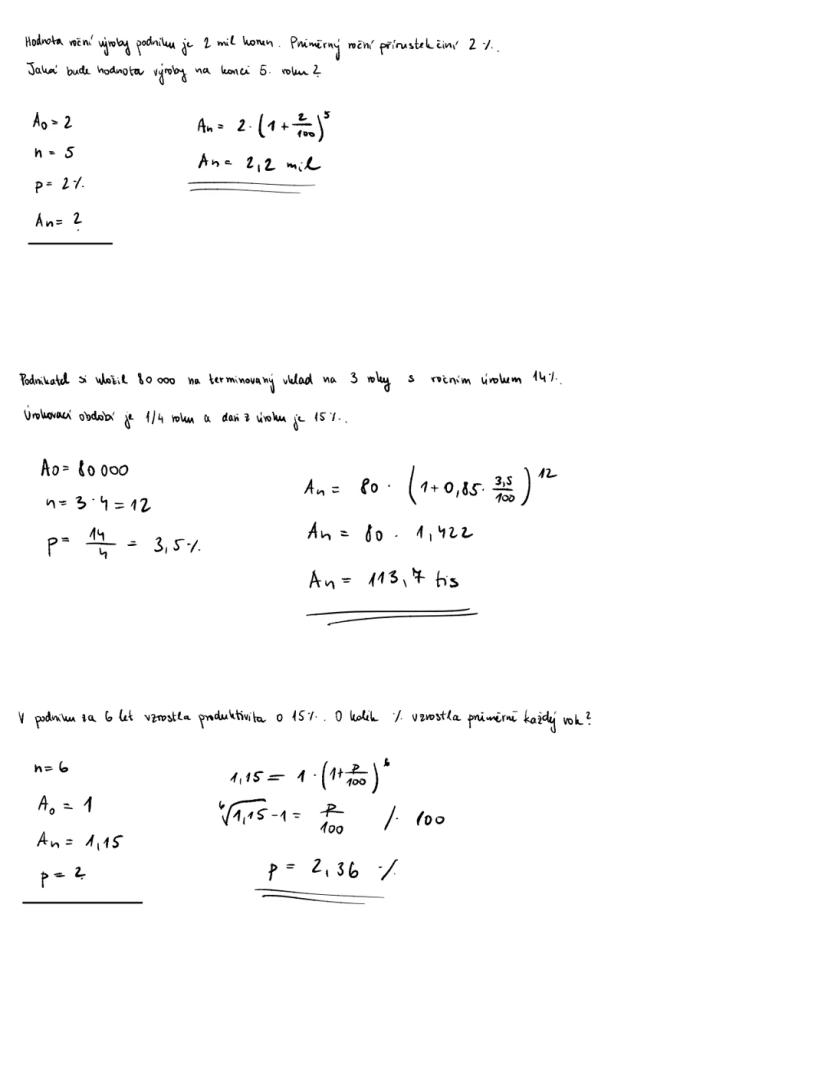 Hodnota roční výroby podniku je 2 mil korun. Průměrný roční přírustek činí 2 %.
Jaká bude hodnota výroby na konci 5. roku?
A₀ = 2
n = 5
p = 2%
An = ?
An = 2 · (1 + 2/100)⁵
An = 2,2 mil
Podnikatel si uložil 80 000 na termínovaný vklad na 3 roky s ročním úrokem 14%.
Úrokovací období je 1/4 roku a daň z úroku je 15%.
A0 = 80 000
n = 3 · 4 = 12
p = 14/4 = 3,5%
An = 80 · (1 + 0,85 · 3,5/100)¹²
An = 80 · 1,422
An = 113,7 tis
V podniku za 6 let vzrostla produktivita o 15%. O kolik % vzrostla průměrně každý rok?
n = 6
A₀ = 1
An = 1,15
p = ?
1,15 = 1 · (1 + p/100)⁶
⁶√1,15 - 1 = p/100 /· 100
p = 2,36 %